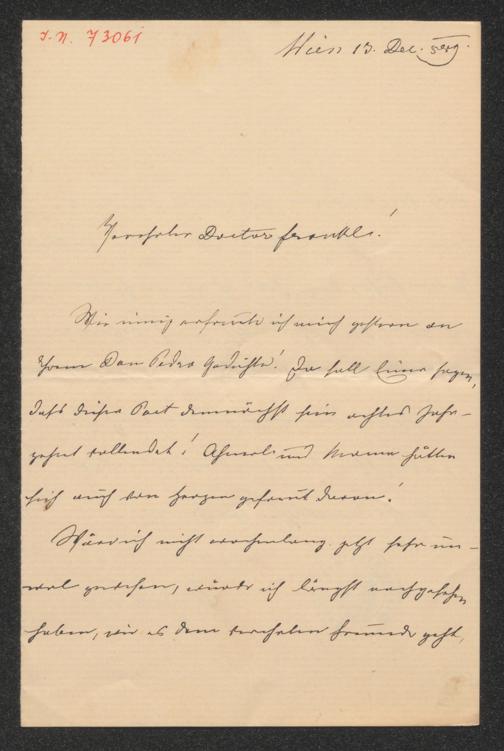 I. N. 73061
Wien 13. Dec.
Verehrter Doctor Frankl!
Wie innig erfreute ich mich gestern an
Ihrem Don Pedro Gedichte! Da soll Einer sagen,
daß dieser Poet demnächst sein achtes Jahr-
zehnt vollendet! und Mama hätten
sich auch von Herzen gefreut daran!
Wäre ich nicht wochenlang jetzt sehr un-
wol gewesen, würde ich längst nachgesehen
haben, wie es dem verehrten Freunde geht,